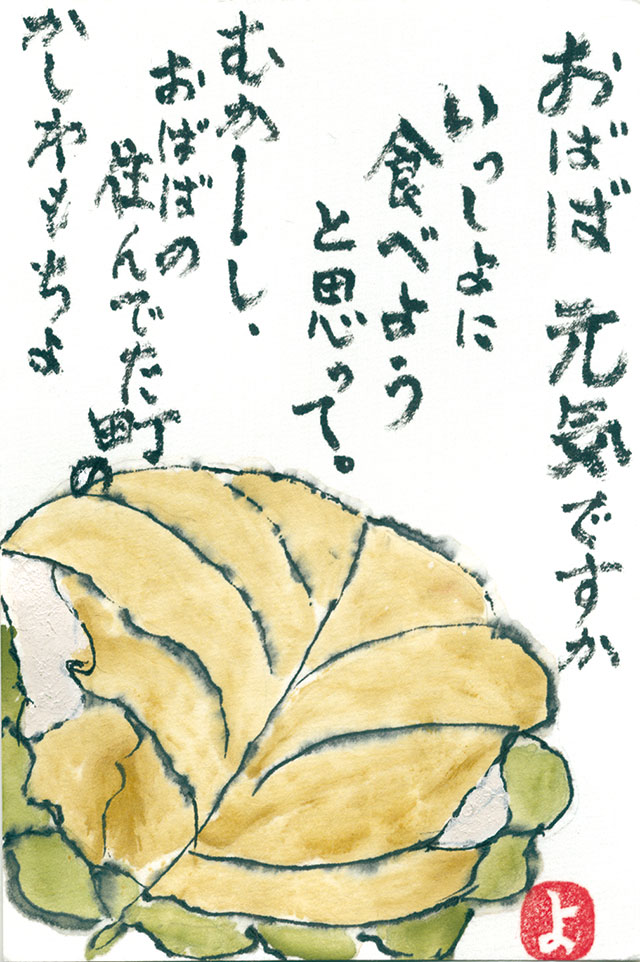 おばば 元気ですか
いっしょに
食べよう
と思って。
むかーし、
おばばの
住んでた町の
かしわもちよ
よ